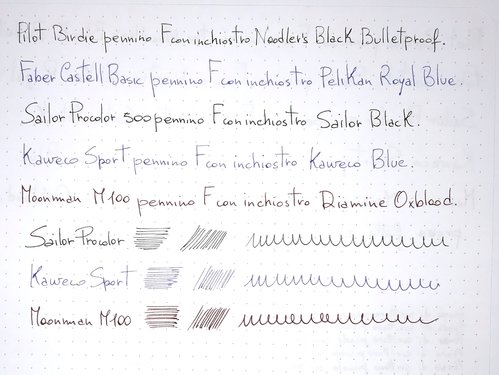 Pilot Birdie pennino F con inchiostro Noodler's Black Bulletproof.
Faber Castell Basic pennino F con inchiostro Pelikan Royal Blue.
Sailor Procolor 500 pennino F con inchiostro Sailor Black.
Kaweco Sport pennino F con inchiostro Kaweco Blue.
Moonman M100 pennino F con inchiostro Diamine Oxblood.
Sailor Procolor
Kaweco Sport
Moonman M100